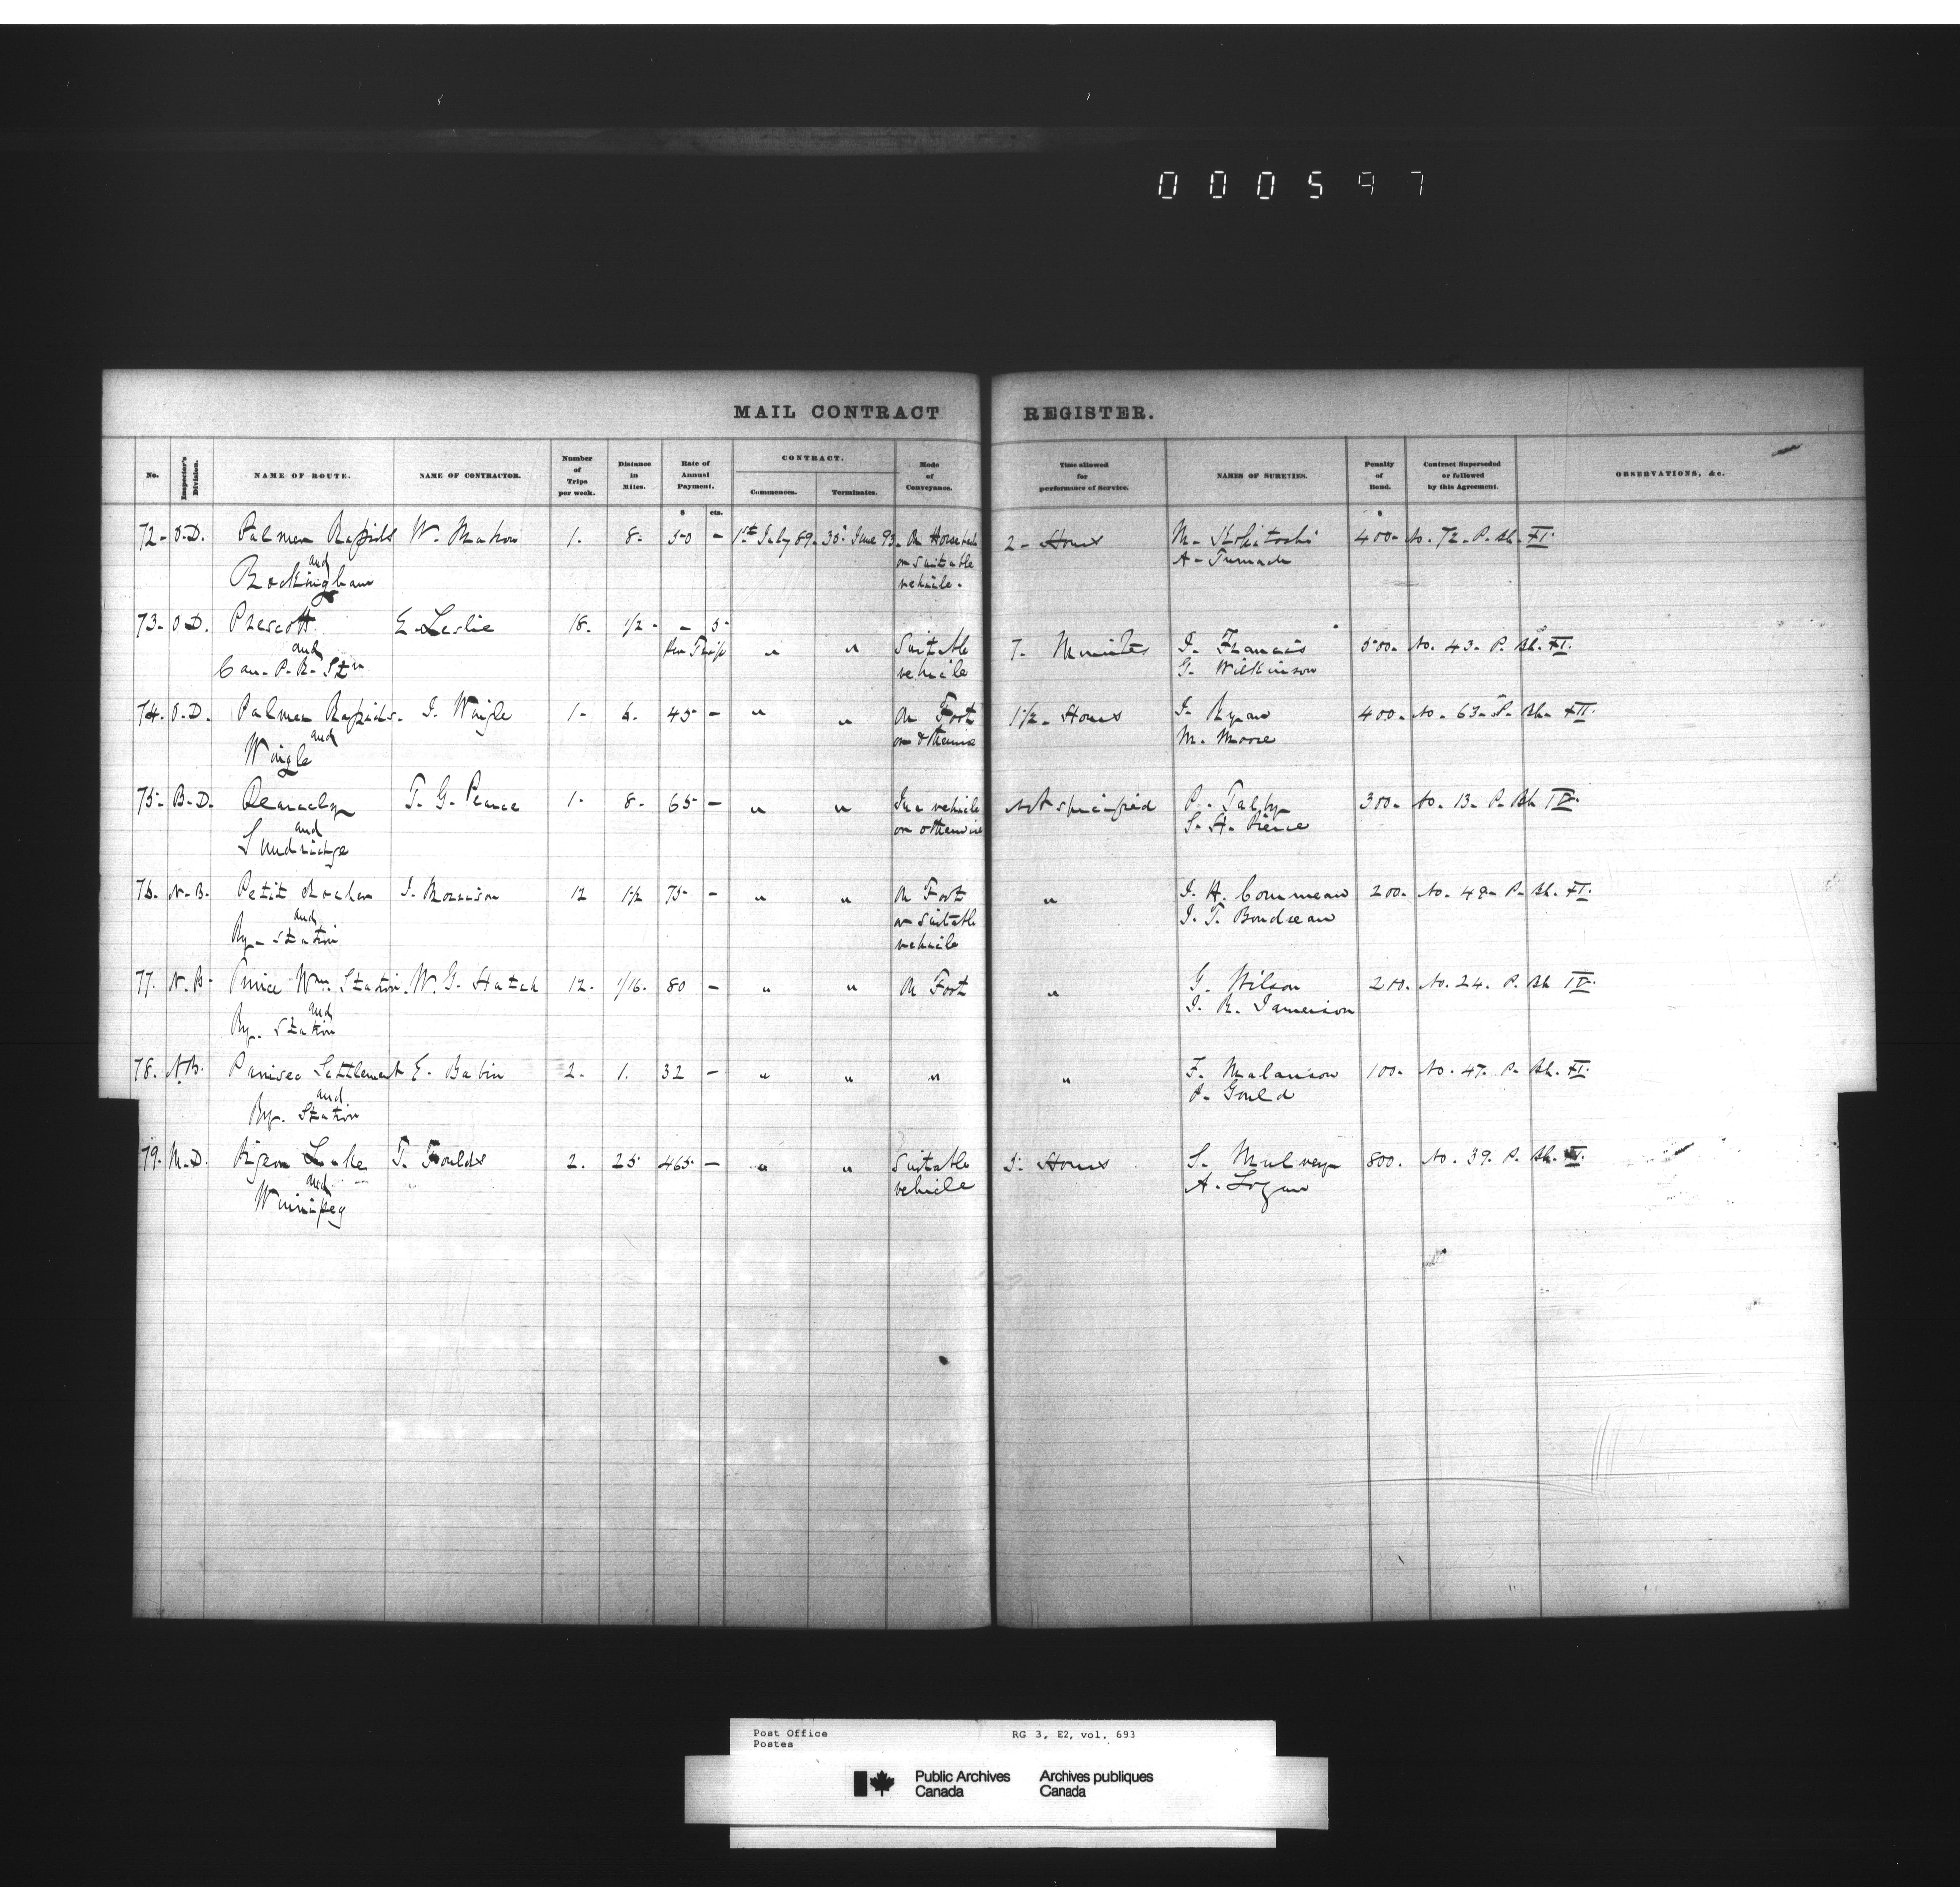 000597
MAIL CONTRACT REGISTER.
No. Inspector's Division. NAME OF ROUTE. NAME OF CONTRACTOR. Number of Trips per week. Distance in Miles. Rate of Annual Payment. CONTRACT. Commences. Terminates. Mode of Conveyance. Time allowed for performance of Service. NAMES OF SURETIES. Penalty of Bond. Contract Superseded or followed by this Agreement. OBSERVATIONS, &c.
$ cts. $
72- O.D. Palmer Rapids W. 1. 8. 50 - 1st July 89. 30 June 93. On Horseback 2- Hours M. 400- No. 72- P. Bk. XI.
and or suitable A.
Rockingham vehicle.
73- O.D. Prescott E. Leslie 18. 1/2- - 5-
and Per Trip " " Suitable 7. Minutes J. Francis 500- No. 43- P. Bk. XI.
Can. P. R. Stn vehicle G. Wilkinson
74. O.D. Palmer Rapids. J. Wingle 1- 6. 45- - " " On Foot 1 1/2- Hours J. Ryan 400- No. 63- P. Bk. XII.
and or otherwise M. Moore
Wingle
75- B.D. T. G. Pearce 1- 8- 65- - " " In a vehicle Not specified P. 300- No. 13- P. Bk IV.
and or otherwise S. H. Pierce
Sundridge
76. N.B. Petit Rocher J. Morrison 12 1 1/2 75- - " " On Foot " J. H. Commeau 200- No. 49- P. Bk. XI.
and or suitable J. T. Boudreau
Ry- Station vehicle
77. N.B. Prince Wm. Station. W. G. Hatch 12. 1/16. 80 - " " On Foot " G. Wilson 200. No. 24. P. Bk IV.
and J. R. Jamerison
Ry. Station
78. N.B. Settlement E. Babin 2. 1. 32 - " " " " F. Melanson 100- No. 47. P. Bk. XI.
and P. Gould
Ry. Station
79. M.D. Pigeon Lake T. Foulds 2. 25 465- - " " Suitable 5- Hours S. Mulvey 800. No. 39. P. Bk.
and vehicle A. Logan
Winnipeg
Post Office RG 3, E2, vol. 693
Postes
Public Archives Archives publiques
Canada Canada